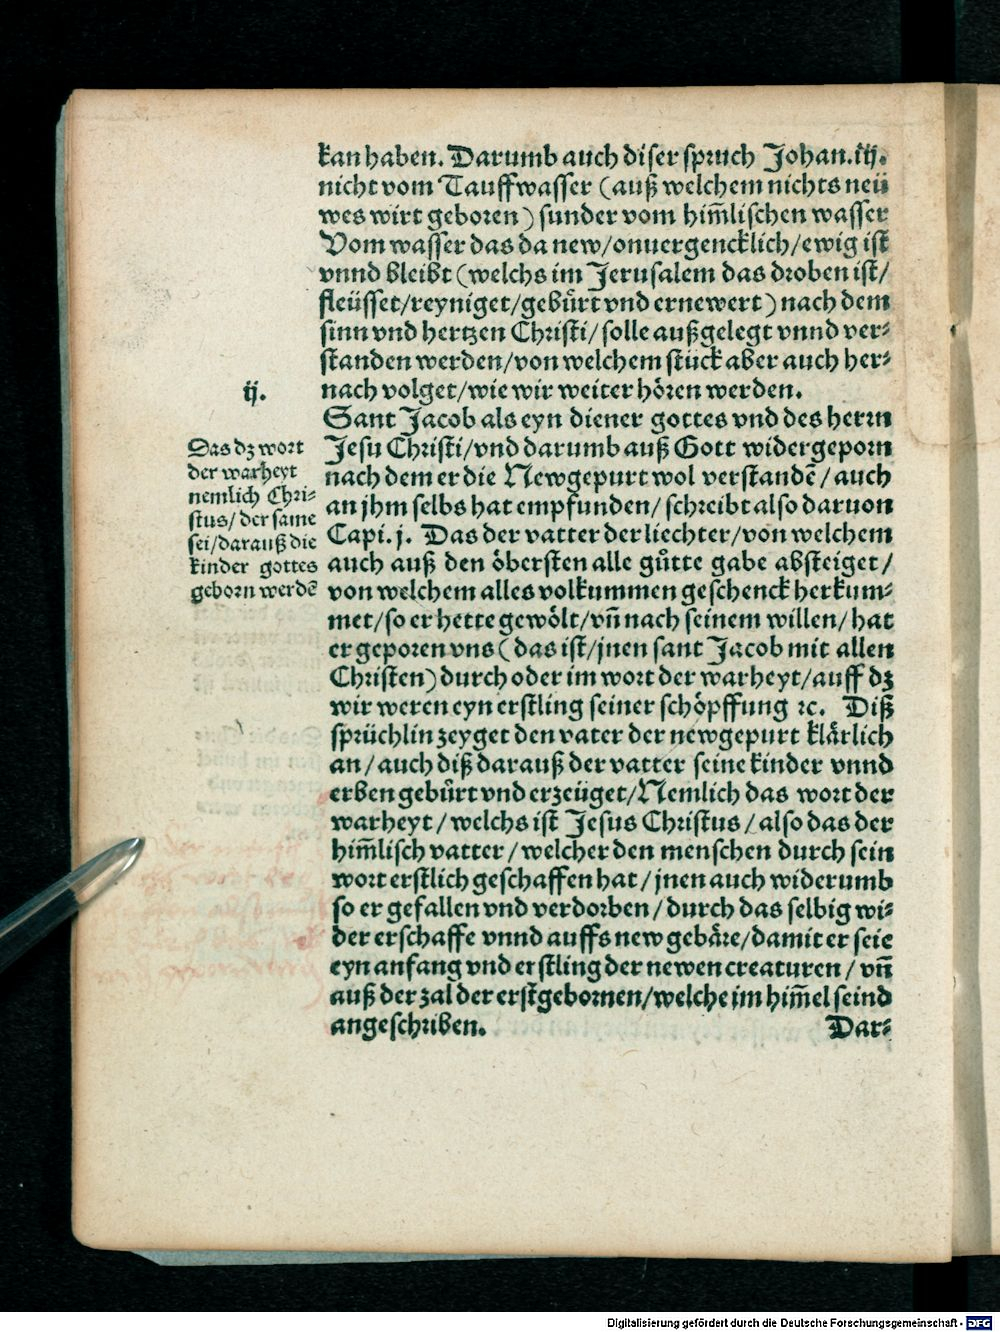 kan haben. Darumb auch diser spruch Johan.iij.
nicht vom Tauffwasser (auß welchem nichts neü
wes wirt geboren) sunder vom him̃lischen wasser
Vom wasser das da new/onuergencklich/ewig ist
vnnd bleibt (welchs im Jerusalem das droben ist/
fleüsset/reyniget/gebürt vnd ernewert) nach dem
sinn vnd hertzen Christi/solle außgelegt vnnd ver⸗
standen werden/von welchem stück aber auch her⸗
nach volget/wie wir weiter hören werden.
ij.
Sant Jacob als eyn diener gottes vnd des herrn
Jesu Christi/vnd darumb auß Gott widergeporn
nach dem er die Newgepurt wol verstandẽ/auch
an jhm selbs hat empfunden/schreibt also daruon
Capi.j. Das der vatter der liechter/von welchem
auch auß den öbersten alle gůtte gabe absteiget/
von welchem alles volkummen geschenck herkum⸗
met/so er hette gewölt/vñ nach seinem willen/hat
er geporen vns (das ist/jnen sant Jacob mit allen
Christen) durch oder im wort der warheyt/auff dz
wir weren eyn erstling seiner schöpffung ꝛc. Diß
sprüchlin zeyget den vater der newgepurt klärlich
an/auch diß darauß der vatter seine kinder vnnd
erben gebürt vnd erzeüget/Nemlich das wort der
warheyt/welchs ist Jesus Christus/also das der
him̃lisch vatter/welcher den menschen durch sein
wort erstlich geschaffen hat/jnen auch widerumb
so er gefallen vnd verdorben/durch das selbig wi⸗
der erschaffe vnnd auffs new gebäre/damit er seie
eyn anfang vnd erstling der newen creaturen/vñ
auß der zal der erstgebornen/welche im him̃el seind
angeschriben. Dar⸗
Das dz wort
der warheyt
nemlich Chri⸗
stus/der same
sei/darauß die
kinder gottes
geborn werdẽ
Digitalisierung gefördert durch die Deutsche Forschungsgemeinschaft - DFG